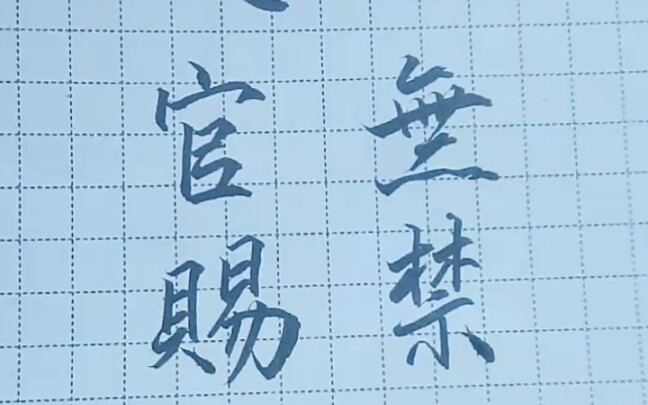 無禁
官賜